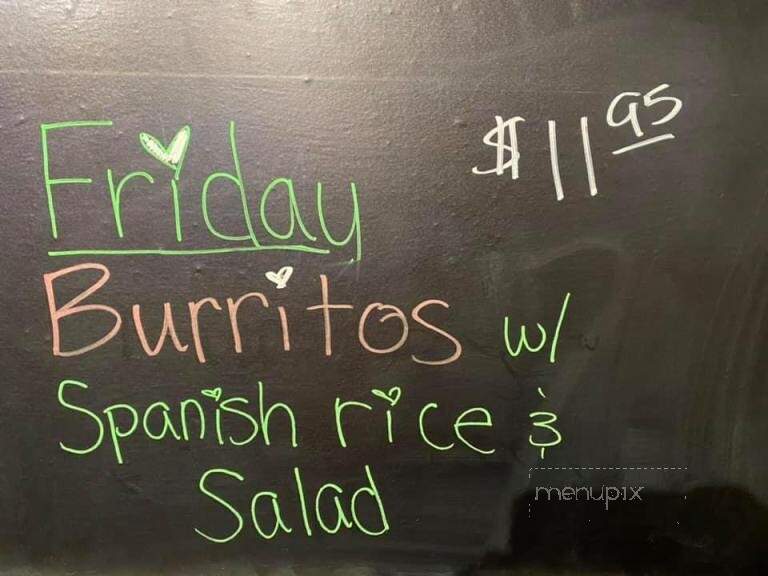 Friday $11.95
Burritos w/
Spanish rice &
Salad
menupix